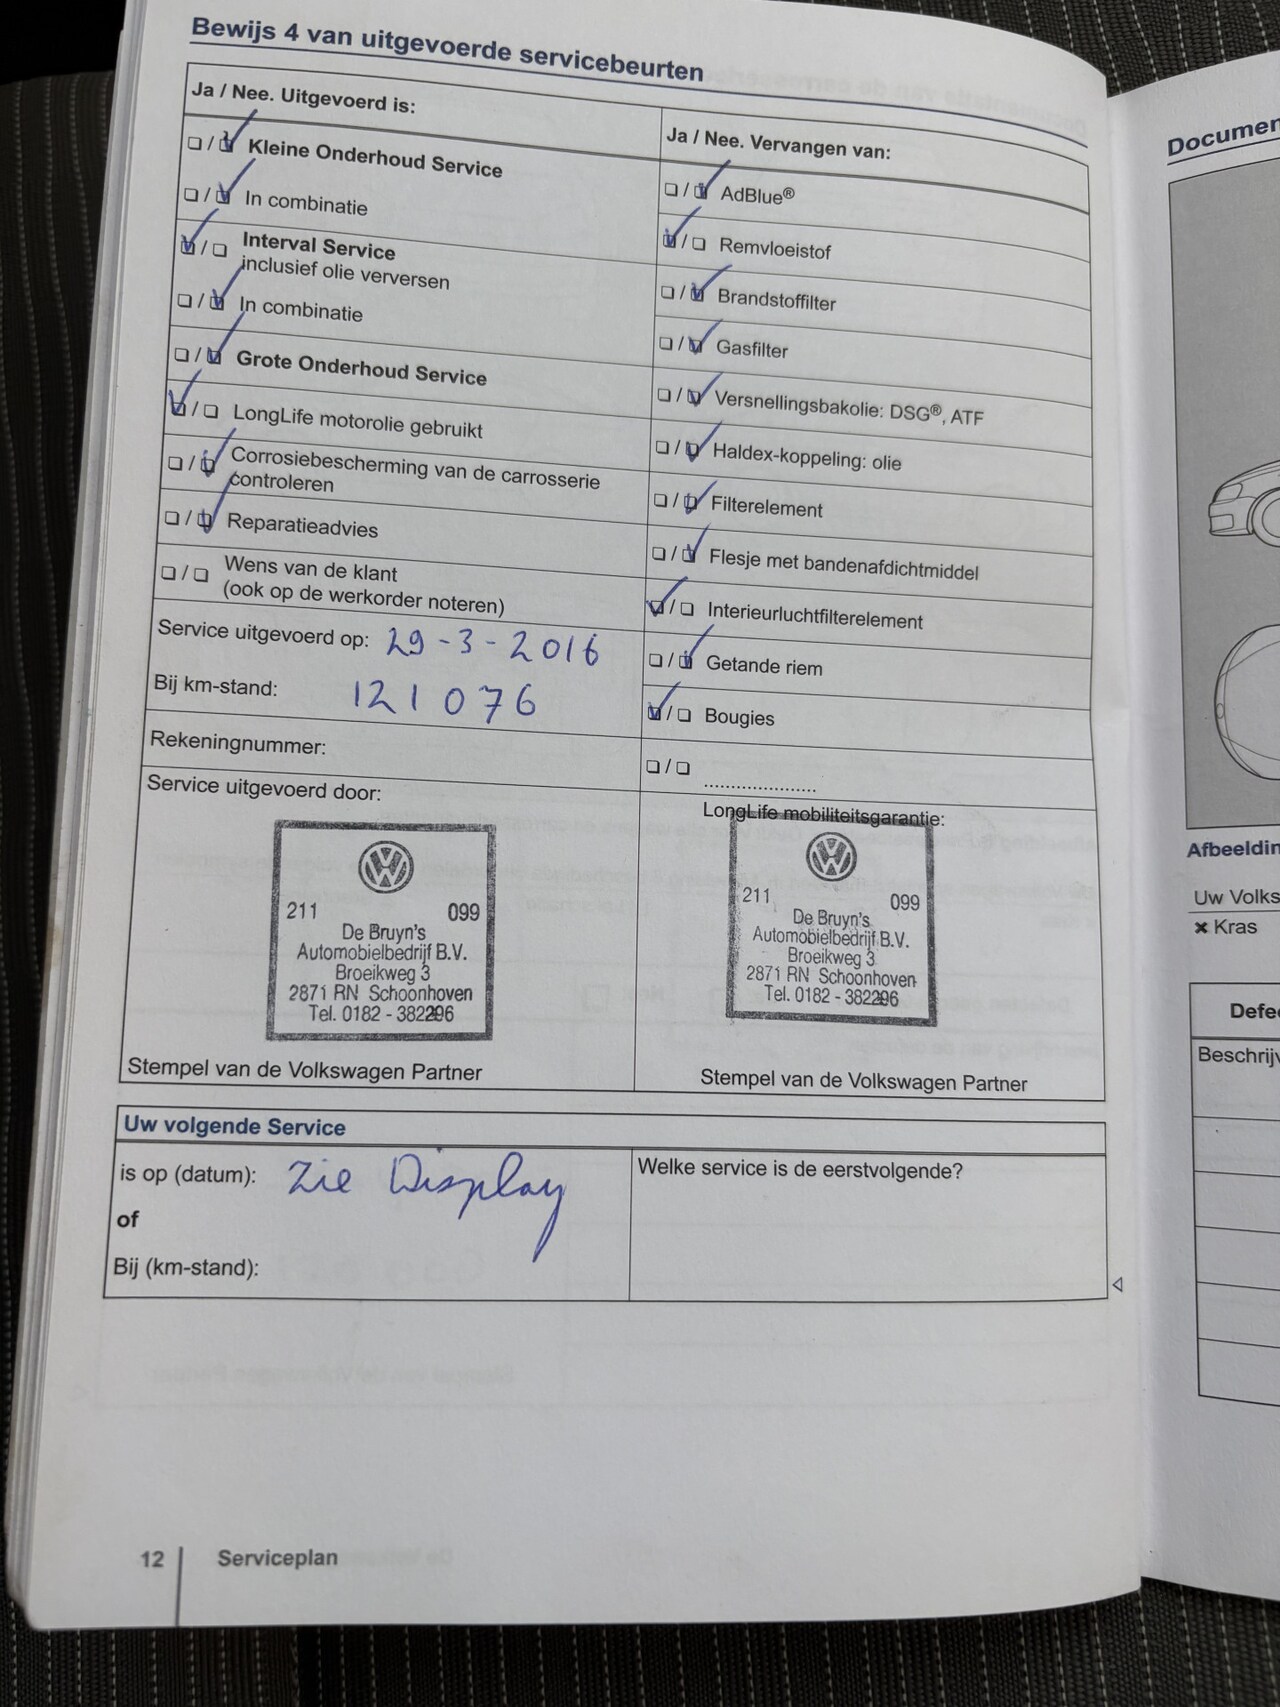 Bewijs 4 van uitgevoerde servicebeurten
Ja / Nee. Uitgevoerd is:
❏ / ☑ Kleine Onderhoud Service
❏ / ☑ In combinatie
☑ / ❏ Interval Service
inclusief olie verversen
❏ / ☑ In combinatie
❏ / ☑ Grote Onderhoud Service
☑ / ❏ LongLife motorolie gebruikt
❏ / ☑ Corrosiebescherming van de carrosserie
controleren
❏ / ☑ Reparatieadvies
❏ / ❏ Wens van de klant
(ook op de werkorder noteren)
Service uitgevoerd op: 29-3-2016
Bij km-stand: 121076
Rekeningnummer:
Service uitgevoerd door:
211 099
De Bruyn's
Automobielbedrijf B.V.
Broeikweg 3
2871 RN Schoonhoven
Tel. 0182 - 382296
Stempel van de Volkswagen Partner
Ja / Nee. Vervangen van:
❏ / ☑ AdBlue®
☑ / ❏ Remvloeistof
❏ / ☑ Brandstoffilter
❏ / ☑ Gasfilter
❏ / ☑ Versnellingsbakolie: DSG®, ATF
❏ / ☑ Haldex-koppeling: olie
❏ / ☑ Filterelement
❏ / ☑ Flesje met bandenafdichtmiddel
☑ / ❏ Interieurluchtfilterelement
❏ / ☑ Getande riem
☑ / ❏ Bougies
❏ / ❏ .....................
LongLife mobiliteitsgarantie:
211 099
De Bruyn's
Automobielbedrijf B.V.
Broeikweg 3
2871 RN Schoonhoven
Tel. 0182 - 382296
Stempel van de Volkswagen Partner
Uw volgende Service
is op (datum): Zie Display
of
Bij (km-stand):
Welke service is de eerstvolgende?
12 Serviceplan
Documen
Afbeeldin
Uw Volks
✖ Kras
Defe
Beschrijv